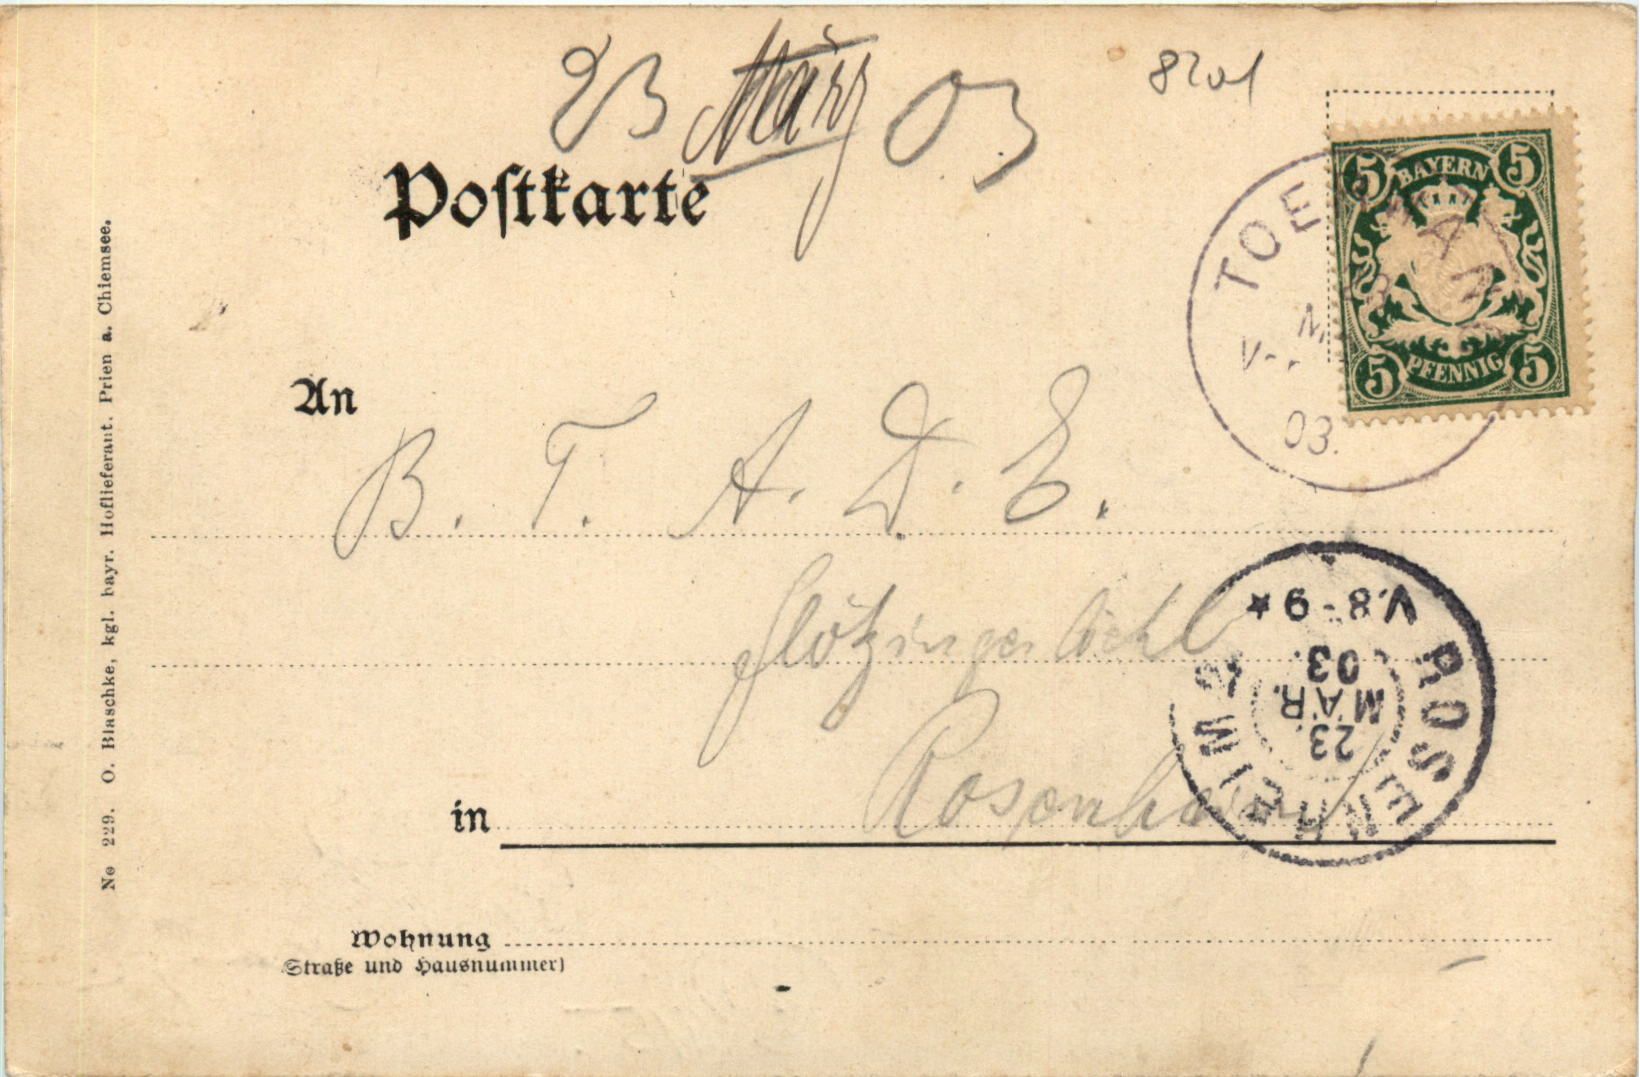 23 März 03
8201
Postkarte
5 BAYERN 5
5 PFENNIG 5
TOE
03.
An
B. T. A. D. E.
Flötzinger Löchl
V.8-9 *
23.
MÄR.
03.
ROSENHEIM 2
in Rosenheim
Wohnung
(Straße und Hausnummer)
No 229. O. Blaschke, kgl. bayr. Hoflieferant. Prien a. Chiemsee.